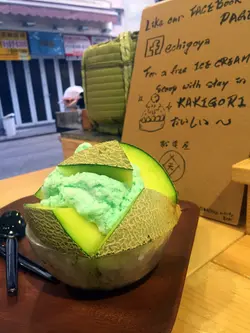 Like our FACEBOOK
PAGE
echigoya
for a free ICE CREAM
Scoop with stay to
KAKIGORI
おいしい〜